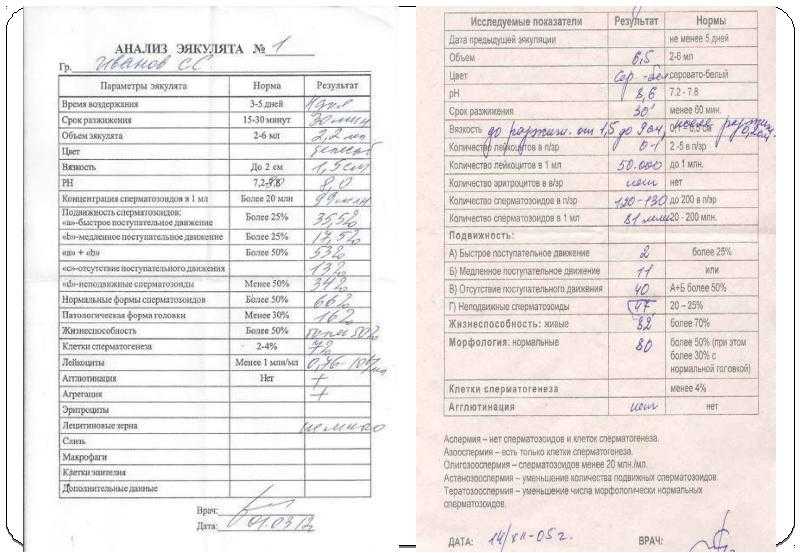 АНАЛИЗ ЭЯКУЛЯТА № 1
Гр. Иванов СС
Параметры эякулята Норма Результат
Время воздержания 3-5 дней 4 дня
Срок разжижения 15-30 минут 30 мин
Объем эякулята 2-6 мл 2,2 мл
Цвет
Вязкость До 2 см 1,5 см
РН 7,2- 8,0
Концентрация сперматозоидов в 1 мл Более 20 млн 99 млн
Подвижность сперматозоидов:
«а»-быстрое поступательное движение Более 25% 35,5%
«b»-медленное поступательное движение Более 25% 17,5%
«а» + «b» Более 50% 53%
«с»-отсутствие поступательного движения 13%
«d»-неподвижные сперматозоиды Менее 50% 34%
Нормальные формы сперматозоидов Более 50% 66%
Патологическая форма головки Менее 30% 16%
Жизнеспособность Более 50% более 50%
Клетки сперматогенеза 2-4% 7%
Лейкоциты Менее 1 млн/мл
Агглютинация Нет +
Агрегация +
Эритроциты
Лецитиновые зерна немного
Слизь
Макрофаги
Клетки эпителия
Дополнительные данные
Врач:
Дата: 01.03.12
Исследуемые показатели Результат Нормы
Дата предыдущей эякуляции не менее 5 дней
Объем 6,5 2-6 мл
Цвет сер.-бел серовато-белый
рН 8,6 7.2 - 7.8
Срок разжижения 30' менее 60 мин.
Вязкость до разжиж. от 1,5 до 9 см, после разжиж. 0,2см 0,1 - 0,5 см
Количество лейкоцитов в п/зр 0-1 2 -5 в п/зр
Количество лейкоцитов в 1 мл 50.000 до 1 млн.
Количество эритроцитов в в/зр нет нет
Количество сперматозоидов в п/зр 120-130 до 200 в п/зр
Количество сперматозоидов в 1 мл 81 млн 20 - 200 млн.
Подвижность:
А) Быстрое поступательное движение 2 более 25%
Б) Медленное поступательное движение 11 или
В) Отсутствие поступательного движения 40 А+Б более 50%
Г) Неподвижные сперматозоиды 47 20 – 25%
Жизнеспособность: живые 82 более 70%
Морфология: нормальные 80 более 50% (при этом
более 30% с
нормальной головкой)
Клетки сперматогенеза менее 4%
Агглютинация нет нет
Аспермия – нет сперматозоидов и клеток сперматогенеза.
Азооспермия – есть только клетки сперматогенеза.
Олигозооспермия – сперматозоидов менее 20 млн./мл.
Астенозооспермия – уменьшение количества подвижных сперматозоидов.
Тератозоосспермия - уменьшение числа морфологически нормальных
сперматозоидов.
ДАТА: 14/XII-05г. ВРАЧ: